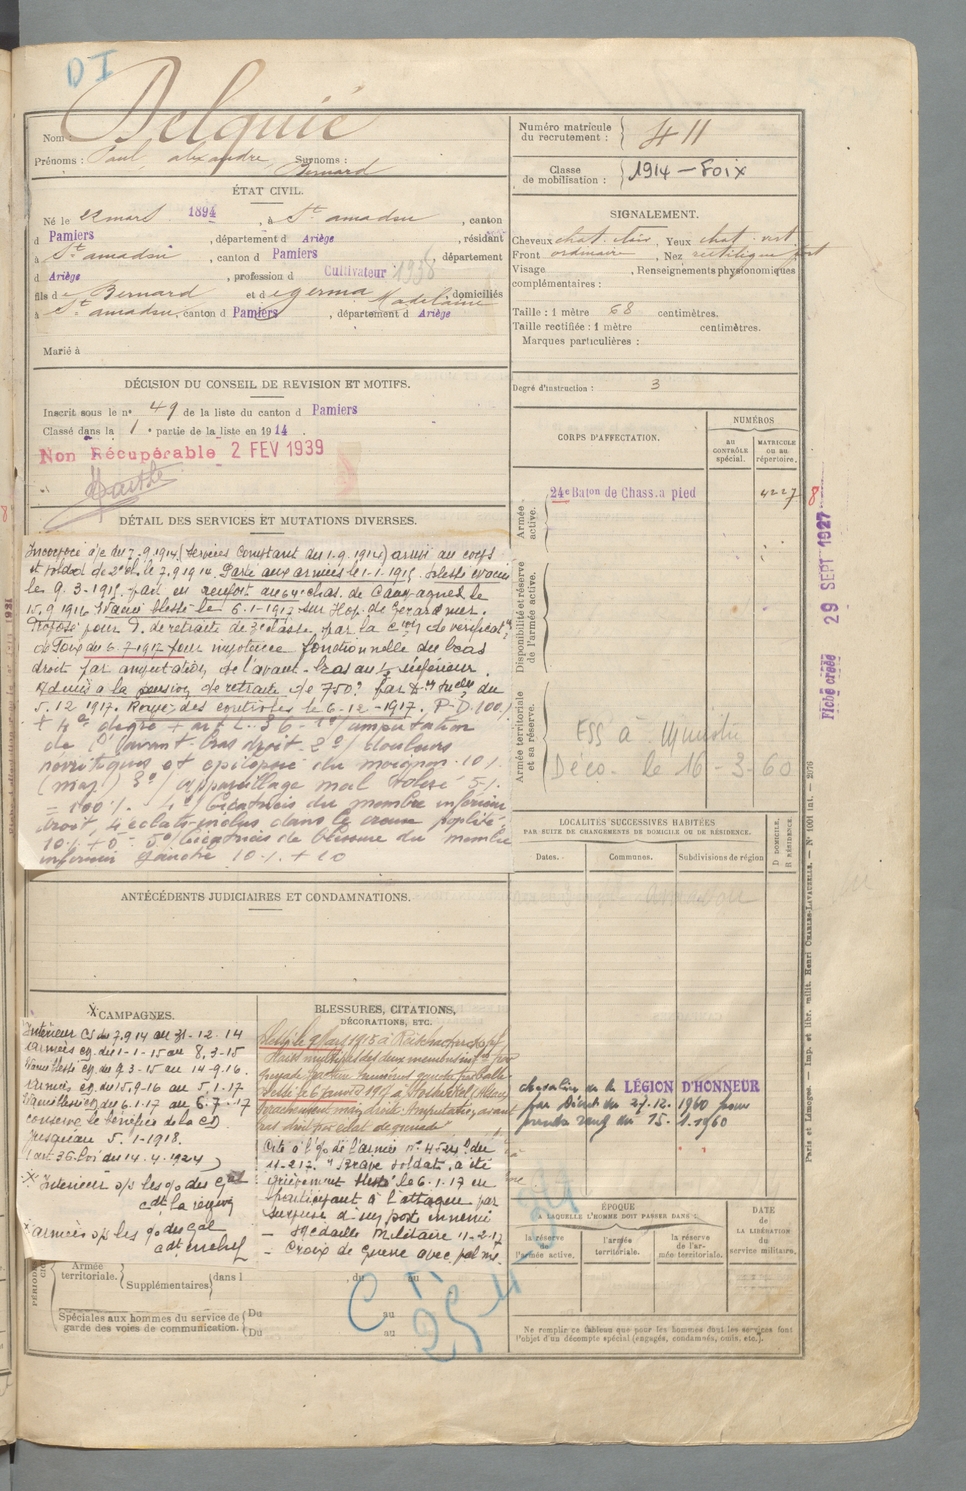 D I
Nom Delquié
Prénoms : Paul alexandre Bernard Surnoms :
Numéro matricule du recrutement : 411
Classe de mobilisation : 1914 — Foix
ÉTAT CIVIL.
Né le 22 mars 1894, à St amadou, canton
d Pamiers, département d Ariège, résidant
à St amadou, canton d Pamiers département
d Ariège, profession d Cultivateur 1938
fils de Bernard et d egerma Madelaine domiciliés
à St amadou, canton d Pamiers, département d Ariège
Marié à
SIGNALEMENT.
Cheveux chat. clair, Yeux chat. vert
Front ordinaire, Nez rectiligne fort
Visage , Renseignements physionomiques
complémentaires :
Taille : 1 mètre 68 centimètres.
Taille rectifiée : 1 mètre centimètres.
Marques particulières :
Degré d'instruction : 3
DÉCISION DU CONSEIL DE REVISION ET MOTIFS.
Inscrit sous le n° 49 de la liste du canton d Pamiers
Classé dans la 1 e partie de la liste en 1914.
Non Récupérable 2 FEV 1939
CORPS D'AFFECTATION.
NUMÉROS
au CONTRÔLE spécial.
MATRICULE ou au répertoire.
Armée active.
24e Baton de Chass. a pied 4227
8
Disponibilité et réserve de l'armée active.
Armée territoriale et sa réserve.
ESS à Ministre
Déco. le 16-3-60
Fiche créée 29 SEPT 1927
DÉTAIL DES SERVICES ET MUTATIONS DIVERSES.
Incorporé à/c du 7.9.1914 (Services Comptant du 1.9.1914) arrivé au corps
et soldat de 2e cl. le 7.9.1914. Parti aux armées le 1-1-1915. blessé évacué
le 9.3-1915. parti en renfort au 64e chas. de Campagnes le
15.9 1916 Evacué blessé le 6.1-1917 sur Hop. de Gerardmer.
Proposé pour P. de retraite de 3e classe par la Con de vérificaton
de Foix du 6.7.1917 pour impotence fonctionnelle du bras
droit par amputation de l'avant-bras au 1/3 inférieur.
Admis à la pension de retraite de 750f par du
5.12 1917. Rayé des contrôles le 6-12-1917. P.D. 100%
+ 4e degré + art L. 36 - 1°/ amputation
de l'avant-bras droit. 2°/ douleurs
névritiques et épilepsie du moignon 10%
(maj) 3°/ appareillage mal toléré 5%
= 100% - 4°/ Cicatrices du membre inférieur
droit, 4 éclats inclus dans le creux poplité
10% + 5 - 5°/ Cicatrices de blessure du membre
inférieur gauche 10% + 10
LOCALITÉS SUCCESSIVES HABITÉES
PAR SUITE DE CHANGEMENTS DE DOMICILE OU DE RÉSIDENCE.
Dates. Communes. Subdivisions de région
D DOMICILE. R RÉSIDENCE.
ANTÉCÉDENTS JUDICIAIRES ET CONDAMNATIONS.
X CAMPAGNES.
Intérieur CS du 7.9 14 au 31-12-14
armées cg. du 1-1-15 au 8.3-15
Evacué blessé cg. du 9.3-15 au 14-9-16.
armées cg. du 15.9-16 au 5.1-17
Evacué blessé CD du 6.1-17 au 6.7-17
conserve le bénéfice de la CD
jusqu'au 5.1-1918.
(art. 36. Loi du 14.4.1924)
X Intérieur o/s les o/ du Gal
cdt la région
armées o/s les o/ du Gal
cdt en chef
BLESSURES, CITATIONS,
DÉCORATIONS, ETC.
Blessé le 9 Mars 1915 à
Plaies multiples des deux membres
Blessé le 6 janvier 1917 à
Arrachement main droite. Amputation avant
bras droit par éclat de grenade
Cité à l'o/ de l'armée n° 4524 du
11-217. "Brave soldat, a été
grièvement blessé le 6.1.17 en
participant à l'attaque par
surprise d'un post ennemi
— Médaille Militaire 11-2-17
— Croix de Guerre avec palme.
chevalier de la LÉGION D'HONNEUR
par Décret du 27.12. 1960 pour
prendre rang du 15.1.1960
PÉRIODES
Armée territoriale. Supplémentaires dans l , du au
Spéciales aux hommes du service de garde des voies de communication. Du au
Du au
ÉPOQUE
A LAQUELLE L'HOMME DOIT PASSER DANS :
la réserve de l'armée active.
l'armée territoriale.
la réserve de l'armée territoriale.
DATE de LA LIBÉRATION du service militaire.
Ne remplir ce tableau que pour les hommes dont les services font
l'objet d'un décompte spécial (engagés, condamnés, omis, etc.).
Paris et Limoges. — Imp. et libr. milit. Henri CHARLES-LAVAUZELLE. — N° 1001 int. — 2076